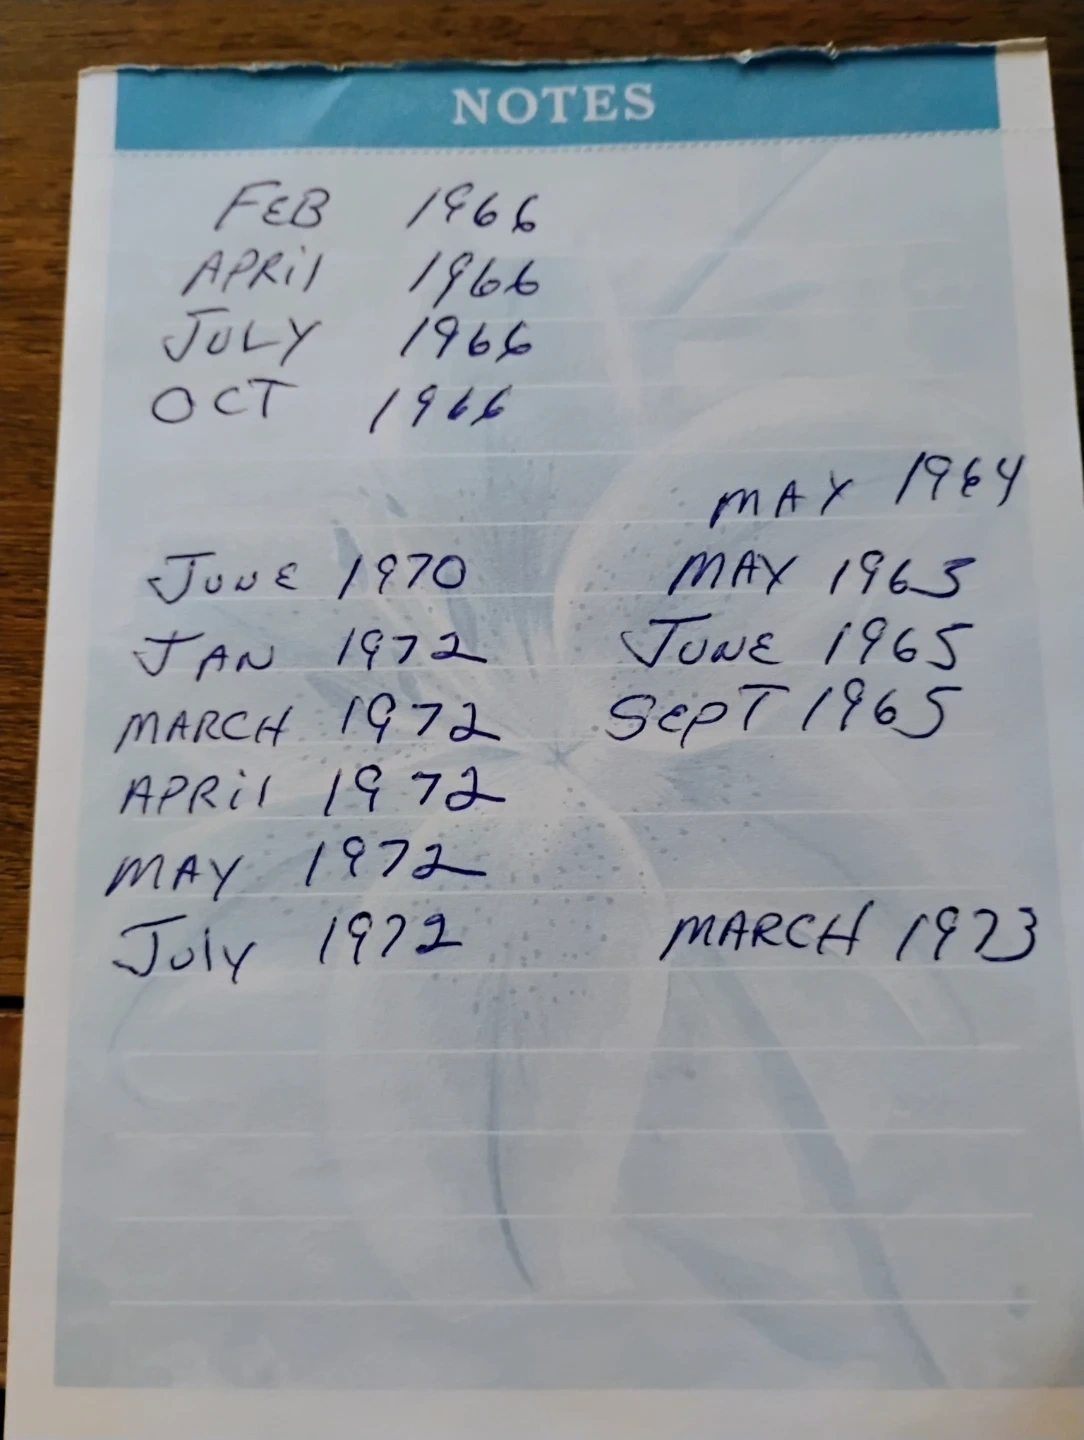 NOTES
FEB 1966
APRil 1966
JULY 1966
OCT 1966
MAY 1964
JUNE 1970
MAY 1965
JAN 1972
JUNE 1965
MARCH 1972
SEPT 1965
APRil 1972
MAY 1972
July 1972
MARCH 1973